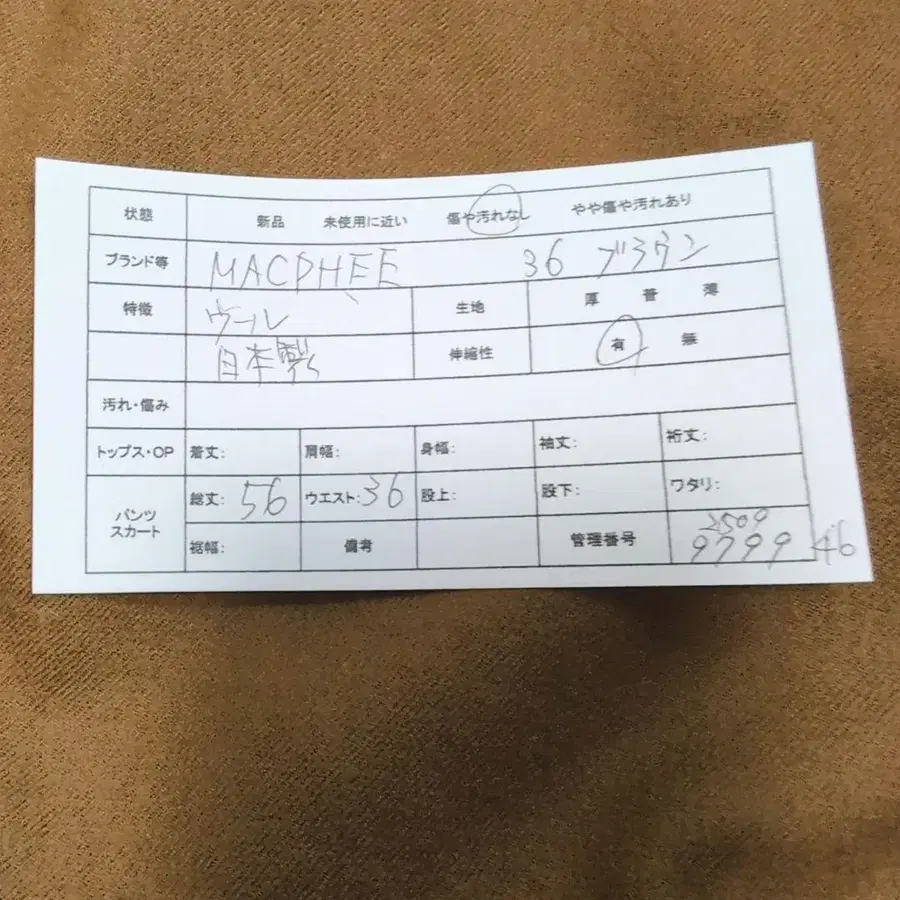 状態 新品 未使用に近い 傷や汚れなし やや傷や汚れあり
ブランド等 MACPHEE 36 ブラウン
特徴 ウール 生地 厚 普 薄
日本製 伸縮性 有 無
汚れ・傷み
トップス・OP 着丈: 肩幅: 身幅: 袖丈: 裄丈:
パンツ スカート 総丈: 56 ウエスト: 36 股上: 股下: ワタリ:
裾幅: 備考 管理番号 2509
9799 46